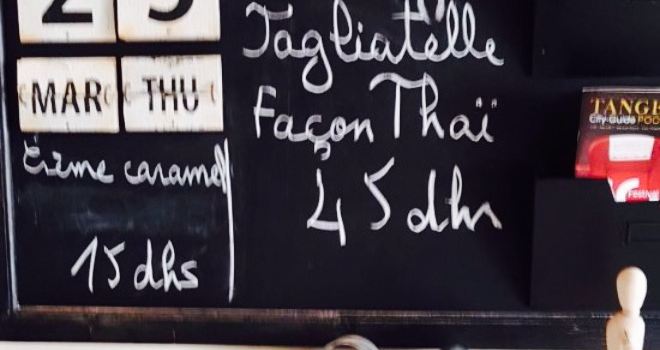 29
MAR THU
Crème caramel
15 dhs
Tagliatelle
Façon Thaï
45 dhs
TANGE
City Guide POC
Festival